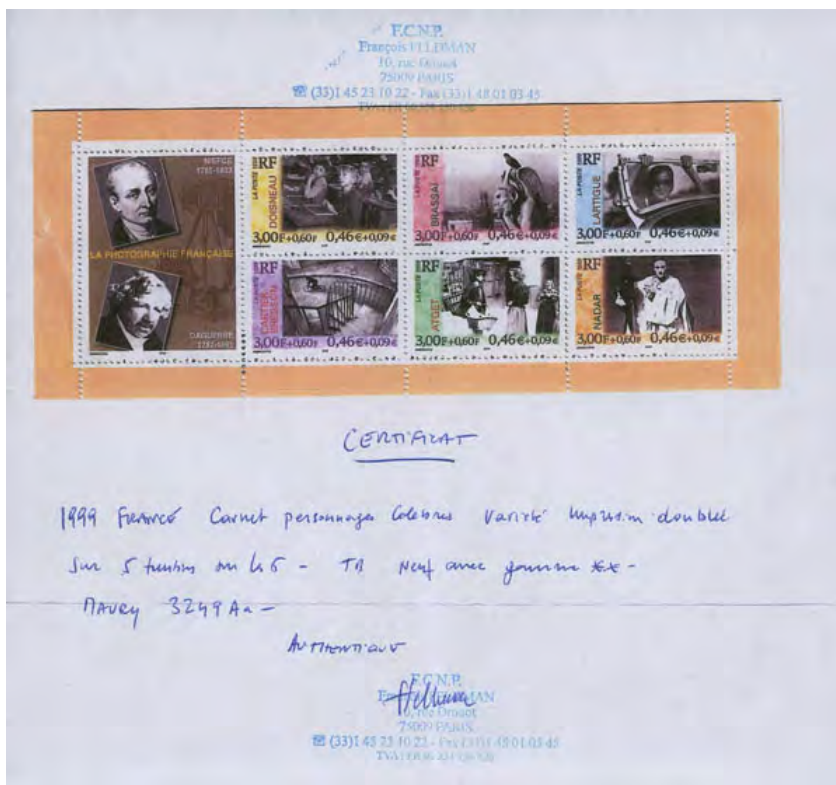 F.C.N.P.
François FELDMAN
10, rue Drouot
75009 PARIS
☎ (33)1 45 23 10 22 - Fax (33)1 48 01 03 45
NIEPCE
LA PHOTOGRAPHIE FRANÇAISE
DAGUERRE
RF
LA POSTE 1999
DOISNEAU
3,00F+0,60F 0,46€+0,09€
RF
LA POSTE 1999
BRASSAÏ
3,00F+0,60F 0,46€+0,09€
RF
LA POSTE 1999
LARTIGUE
3,00F+0,60F 0,46€+0,09€
RF
LA POSTE 1999
CARTIER BRESSON
3,00F+0,60F 0,46€+0,09€
RF
LA POSTE 1999
ATGET
3,00F+0,60F 0,46€+0,09€
RF
LA POSTE 1999
NADAR
3,00F+0,60F 0,46€+0,09€
CERTIFICAT
1999 FRANCE Carnet personnages Celebres Variété Impression doublée
Sur 5 timbres sur les 6 - TB Neuf avec gomme ** -
MAURY 3249 Aa -
AUTHENTIQUE
F.C.N.P.
FELDMAN
10, rue Drouot
75009 PARIS
☎ (33)1 45 23 10 22 - Fax (33)1 48 01 03 45